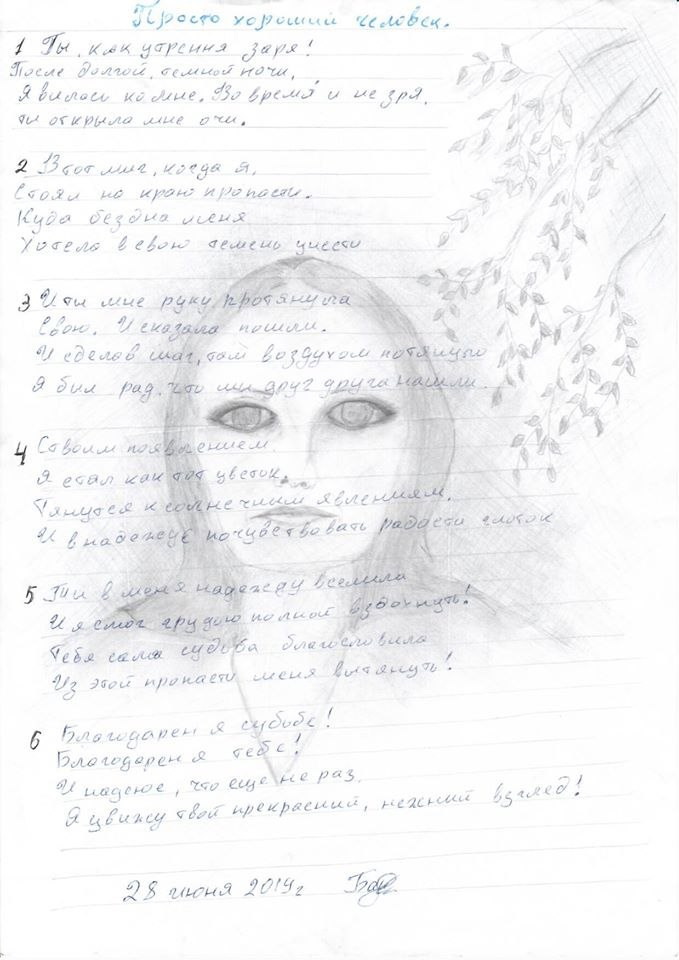 Просто хороший человек.
1 Ты, как утрення заря!
После долгой, темной ночи,
Явилась ко мне. Во время и не зря,
ты открыла мне очи.
2 В тот миг, когда я,
Стоял на краю пропасти.
Куда бездна меня
Хотела в свою темень унести
3 И ты мне руку протянула
Свою. И сказала пошли.
И сделав шаг, там воздухом потянуло
Я был рад, что мы друг друга нашли.
4 С твоим появлением
Я стал как тот цветок.
Тянутся к солнечным явлениям,
И в надежде почувствовать радости глоток
5 Ты в меня надежду вселила
И я смог грудью полной вздохнуть!
Тебя сама судьба благословила
Из этой пропасти меня вытянуть!
6 Благодарен я судьбе!
Благодарен я тебе!
И надеюс, что еще не раз
Я увижу твой прекрасний, нежний взгляд!
28 июня 2019г